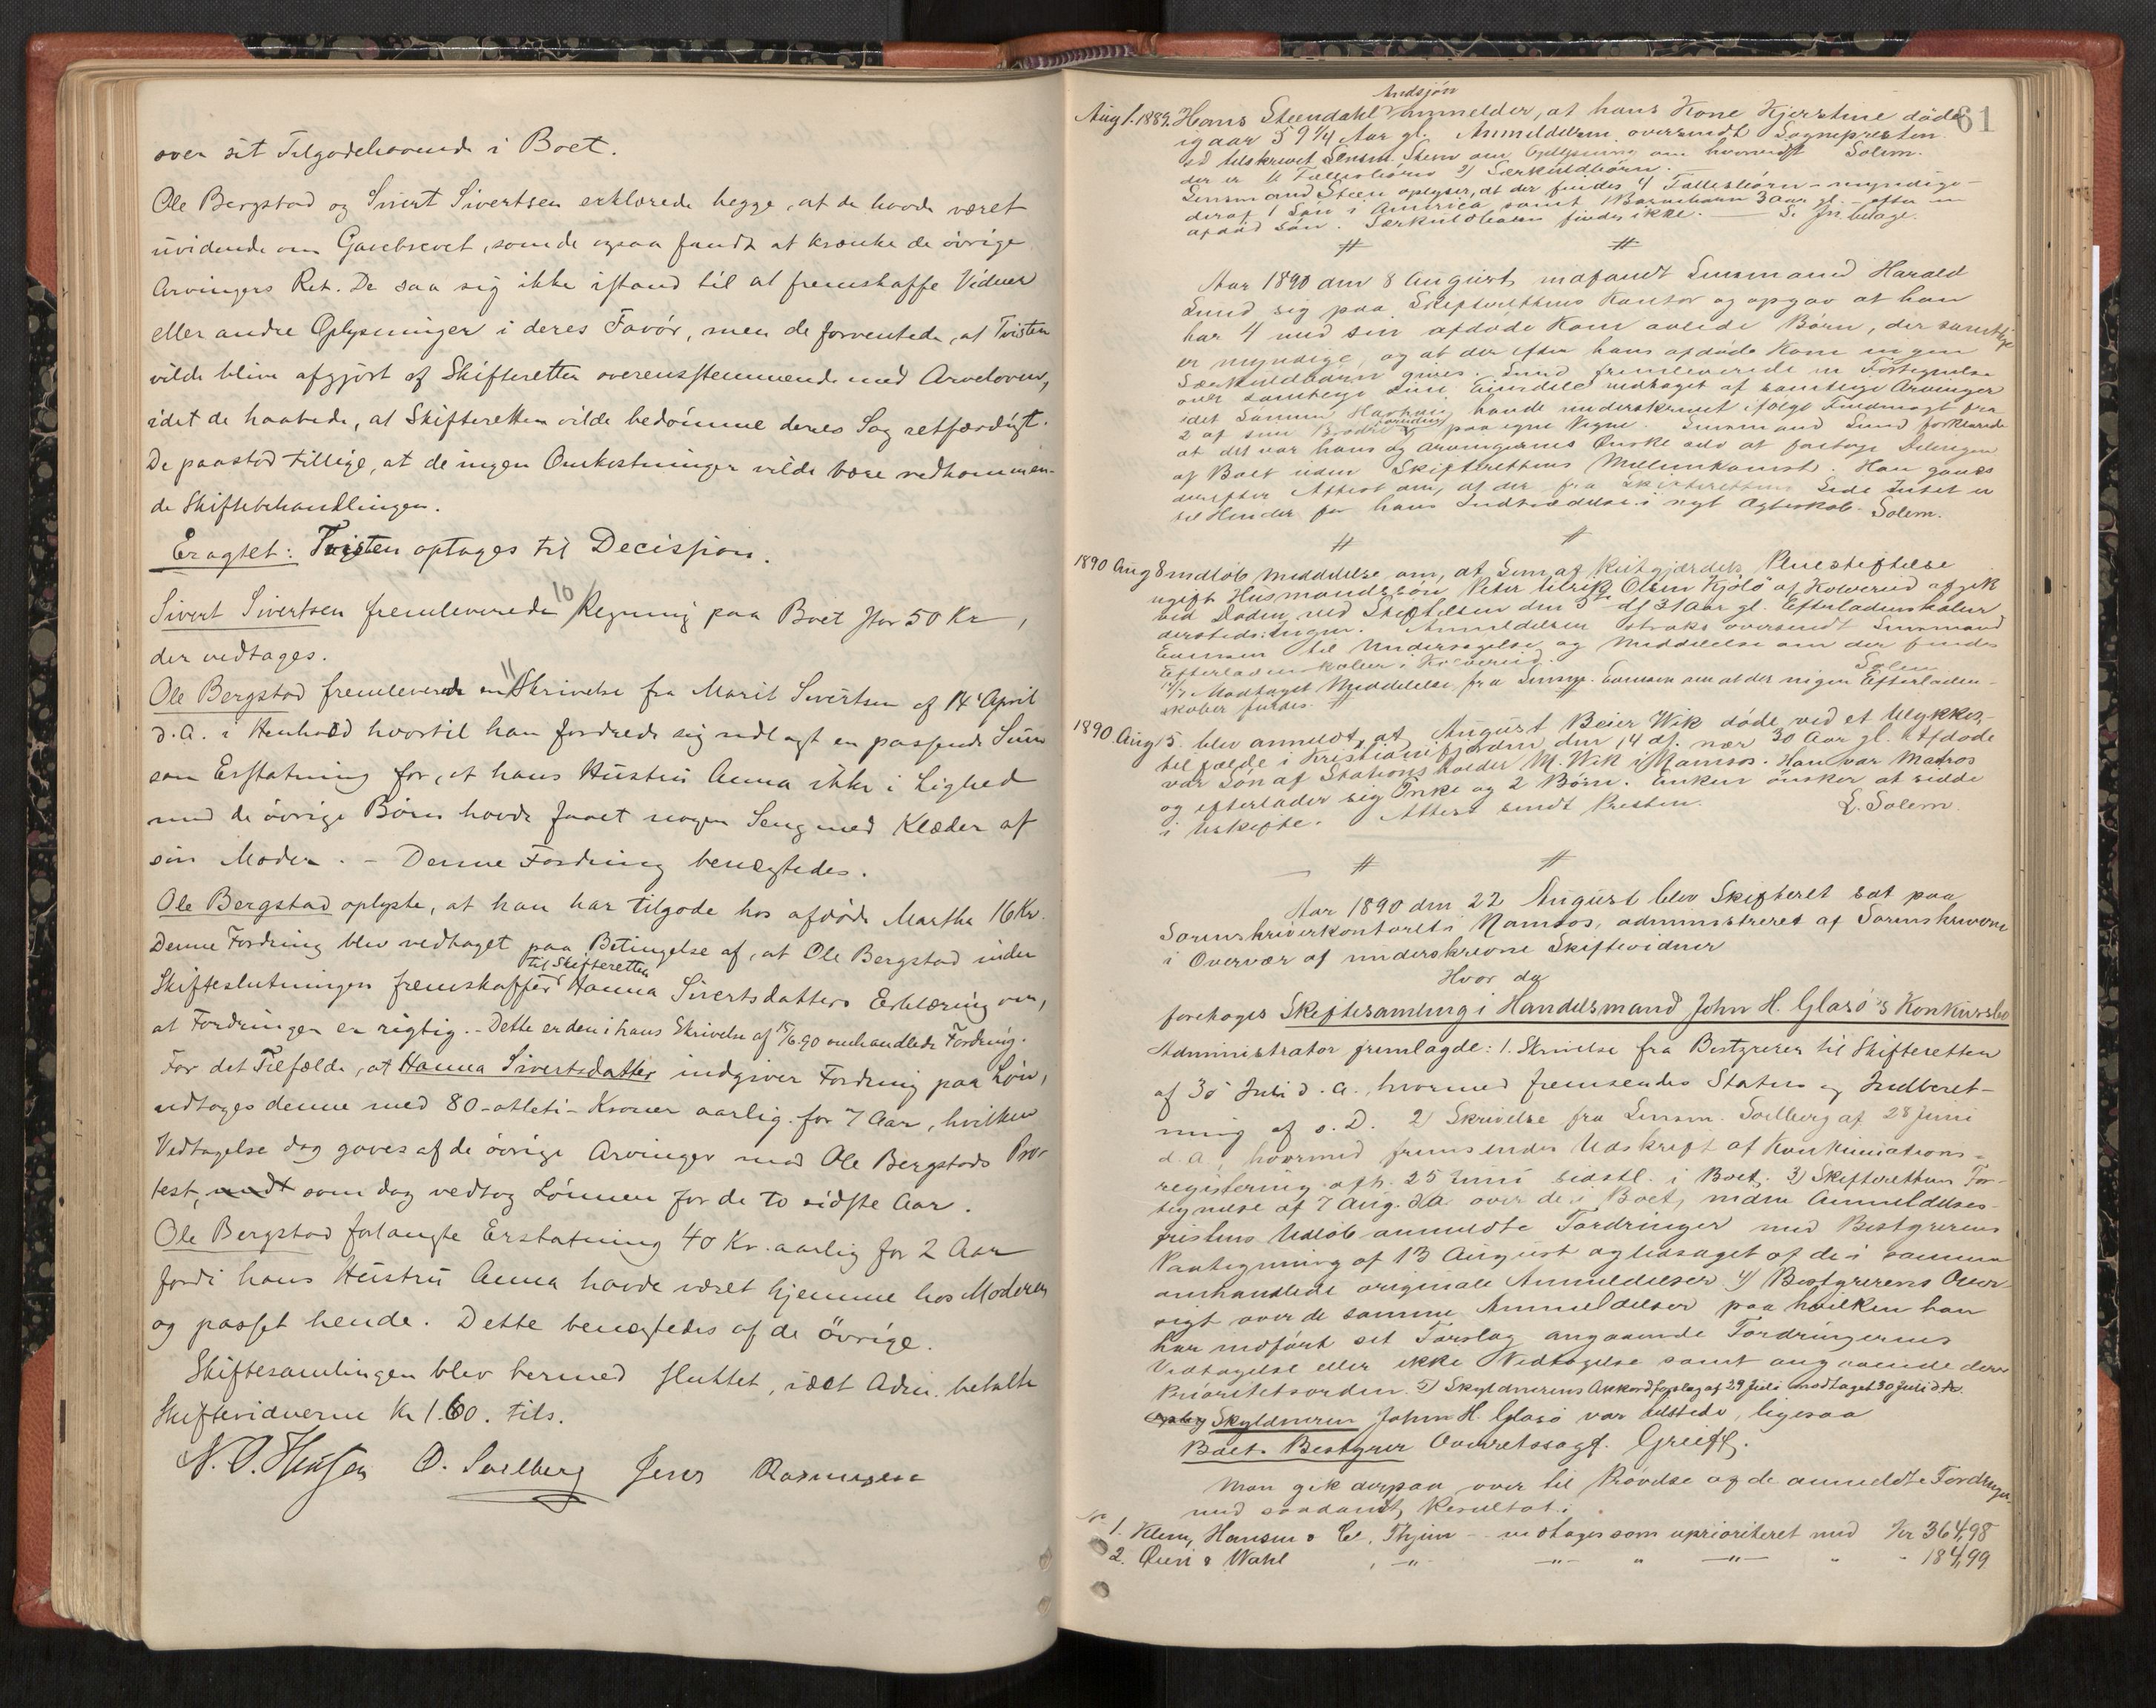 over sit Tilgodehavende i Boet.
Ole Bergstad og Sivert Sivertsen erklærede begge, at de havde været
uvidende om Gavebrevet, som de ogsaa fandt at krænke de øvrige
Arvingers Ret. De saa sig ikke istand til at fremskaffe Vidner
eller andre Oplysninger i deres Favór, men de forventede, at Tvisten
vilde blive afgjórt af Skifteretten overensstemmende med Arveloven,
idet de haabede, at Skifteretten vilde bedómme deres Sag retfærdigt.
De paastod tillige, at de ingen Omkostninger vilde være vedkommen-
de Skiftebehandlingen.
Eragtet: Tvisten optages til Decission.
Sivert Sivertsen fremleverede 10 Regning paa Boet stor 50 Kr,
der vedtages.
Ole Bergstad fremleverede en 11 Skrivelse fra Marit Sivertsen af 14 April
d.A. i Henhold hvortil han fordrede sig udlagt en passende Sum
som Erstatning for, at hans Hustru Anna ikke i Lighed
med de óvrige Børn havde faaet nogen Seng med Klæder af
sin Moder. - Denne Fordring benægtedes.
Ole Bergstad oplyste, at han har tilgode hos afdøde Martha 16 Kr.
Denne Fordring blev vedtaget paa Betingelse af, at Ole Bergstad inden
Skifteslutningen fremskaffer til Skifteretten Hanna Sivertsdatters Erklæring om,
at Fordringen er rigtig. - Dette er den i hans Skrivelse af 15/6 90 omhandlede Fordring.
For det Tilfælde, at Hanna Sivertsdatter indgiver Fordring paa Lón,
vedtoges denne med 80 - otteti - Kroner aarlig for 7 Aar, hvilken
Vedtagelse dog gaves af de óvrige Arvinger mod Ole Bergstads Pro-
test, som dog vedtog Lónnen for de to sidste Aar.
Ole Bergstad forlangte Erstatning 40 Kr. aarlig for 2 Aar
fordi hans Hustru Anna havde været hjemme hos Moderen
og passet hende. Dette benægtedes af de óvrige.
Skiftesamlingen blev hermed sluttet, idet Adm. betalte
Skiftevidnerne Kr 1.60. tils.
N. O. Hansen O. Soelberg Jens Rasmussen
61
Andsjón
Aug 1. 1889. Hans Steendahl anmelder, at hans Kone Kjerstine døde
igaar 59 1/4 Aar gl. Anmeldelsen oversendt Sognepresten
og tilskrevet Lensm. Steen om Oplysning om hvorvidt Solem.
der er 1) Fællesbórn 2) Særkuldbórn.
Lensmand Steen oplyser, at der findes 4 Fællesbórn - myndige -
deraf 1 Són i America samt Barnebarn 3 aar gl. - efter en
afdød Són. Særkuldbarn findes ikke.
Aar 1890 den 8 August, indfandt Lensmand Harald
Lund sig paa Skifterettens Kontor og opgav at han
har 4 med sin afdøde Kone avlede Børn, der samtlige
er myndige, og at der efter hans afdøde Kone ingen
Særkuldbørn gives. Lund fremleverede en Fortegnelse
over samtlige sine Eiendele vedtaget af samtlige Arvinger
idet Sønnen havde underskrevet ifølge Fuldmagt fra
2 af sine Brødre paa egne Vegne. Lensmand Lund forklarede
at det var hans og arvingernes Ønske selv at foretage Delingen
af Boet uden Skifterettens Mellemkomst. Han gaves
derefter Attest om, at der fra Skifterettens Side Intet er
til Hinder for hans Indtrædelse i nyt Ægteskab. Solem.
1890 Aug 8 indløb Meddelelse om, at Lem af Reitgjærdets Pleiestiftelse
ugift Husmandssón Peter Olsen Kjóló af Kolvereid afgik
ved Døden ved Stiftelsen den 5te ds. 31 Aar gl. Efterladenskaber
dersteds: Ingen. Anmeldelsen straks oversendt Lensmand
til Undersøgelse og Meddelelse om der findes
Efterladenskaber i Kolvereid. Solem
Modtaget Meddelelse fra Lensm. om at der ingen Efterladen-
skaber findes.
1890 Aug 15. blev anmeldt, at August Beier Wik døde ved et Ulykkes-
tilfælde i Kristianiafjorden den 14 ds. nær 30 Aar gl. Afdøde
var Søn af Stationsholder M. Wik i Namsos. Han var Matros
og efterlader sig Enke og 2 Børn. Enken ønsker at sidde
i Uskifte. Attest sendt Presten. L. Solem.
Aar 1890 den 22 August blev Skifteret sat paa
Sorenskriverkontoret i Namsos, administreret af Sorenskriveren
i Overvær af underskrevne Skiftevidner
Hvor da
foretoges Skiftesamling i Handelsmand John H. Glasø's Konkursbo
Administrator fremlagde: 1. Skrivelse fra Bestyreren til Skifteretten
af 30 Juli d.A., hvormed fremsendes Status og Indberet-
ning af s. D. 2) Skrivelse fra Lensm. Soelberg af 28 Juni
d.A., hvormed fremsendes Udskrift af Kontinuations-
registrering afh. 25 Juni sidstl. i Boet. 3) Skifterettens For-
tegnelse af 7 Aug. d.A. over de i Boet, inden Anmeldelses-
fristens Udløb anmeldte Fordringer med Bestyrerens
Paategning af 13 August og ledsaget af de i samme
omhandlede originale Anmeldelser 4) Bestyrerens Over-
sigt over de samme Anmeldelser paa hvilken han
har indført sit Forslag angaaende Fordringernes
Vedtagelse eller ikke Vedtagelse samt angaaende deres
Prioritetsorden. 5) Skyldnerens Akkordforslag af 29 Juli modtaget 30 Juli d.A.
Skyldneren John H. Glasø var tilstede, ligesaa
Boets Bestyrer Overretssagf. Greiff.
Man gik derpaa over til Prøvelse af de anmeldte Fordringer
med saadant Resultat:
No 1. Klem, Hansen & Co, Thjem - vedtages som uprioriteret med Kr 364,98
2. Wahl -"- -"- " -"- " - 184,99